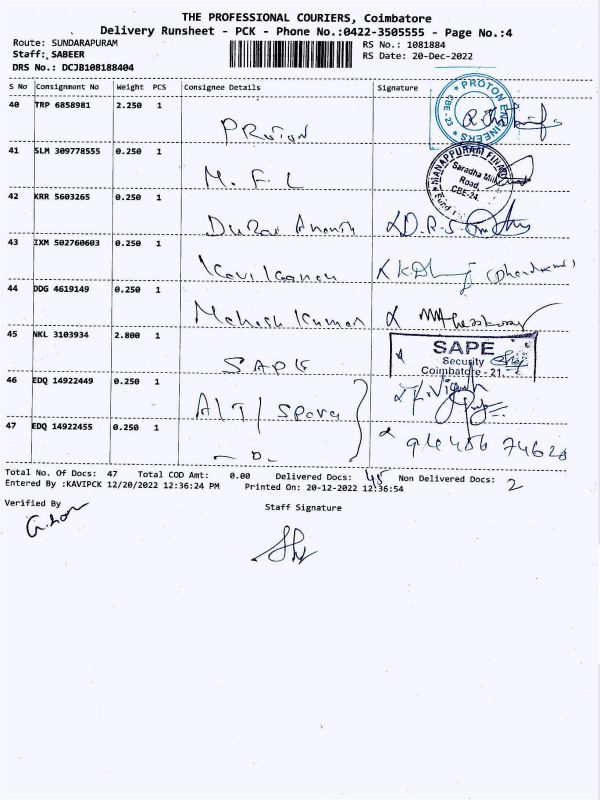 THE PROFESSIONAL COURIERS, Coimbatore
Delivery Runsheet - PCK - Phone No.:0422-3505555 - Page No.:4
Route: SUNDARAPURAM
RS No.: 1081884
Staff: SABEER
RS Date: 20-Dec-2022
DRS No.: DCJB108188404
S No Consignment No Weight PCS Consignee Details Signature
40 TRP 6858981 2.250 1
PROTON
PROTON ENGINEERS
CBE - 23
41 SLM 309778555 0.250 1
M. F L
MANAPPURAM FINANCE
Saradha Mill
Road,
CBE-24.
42 KRR 5603265 0.250 1
Durai Ananth
43 IXM 502760603 0.250 1
44 DDG 4619149 0.250 1
Mahesh Kumar
45 NKL 3103934 2.800 1
SAPE
SAPE
Security
Coimbatore - 21.
46 EDQ 14922449 0.250 1
47 EDQ 14922455 0.250 1
- D -
Total No. Of Docs: 47 Total COD Amt: 0.00 Delivered Docs: 45 Non Delivered Docs: 2
Entered By :KAVIPCK 12/20/2022 12:36:24 PM Printed On: 20-12-2022 12:36:54
Verified By
Staff Signature